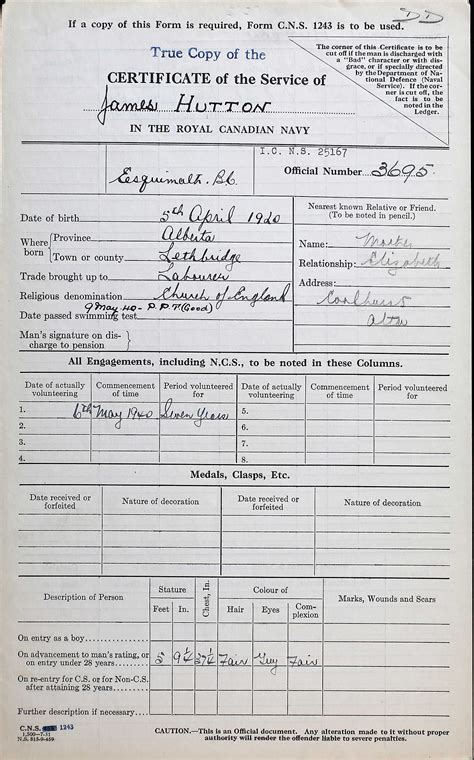 DD
If a copy of this Form is required, Form C.N.S. 1243 is to be used.
True Copy of the
CERTIFICATE of the Service of
James HUTTON
IN THE ROYAL CANADIAN NAVY
The corner of this Certificate is to be
cut off if the man is discharged with
a "Bad" character or with dis-
grace, or if specially directed
by the Department of Na-
tional Defence (Naval
Service). If the cor-
ner is cut off, the
fact is to be
noted in the
Ledger.
I.C. N.S. 25167
Esquimalt. B.C.
Official Number 3695
Date of birth 5th April 1920
Where born
Province Alberta
Town or county Lethbridge
Trade brought up to Labourer
Religious denomination Church of England
9 May 40 - P.P.T. (Good)
Date passed swimming test
Man's signature on dis-
charge to pension
Nearest known Relative or Friend.
(To be noted in pencil.)
Name: Mother
Relationship: Elizabeth
Address:
Coalhurst
Alta
All Engagements, including N.C.S., to be noted in these Columns.
Date of actually volunteering Commencement of time Period volunteered for Date of actually volunteering Commencement of time Period volunteered for
1. 6th May 1940 Seven Years 5.
2. 6.
3. 7.
4. 8.
Medals, Clasps, Etc.
Date received or forfeited Nature of decoration Date received or forfeited Nature of decoration
Description of Person Stature Chest, In. Colour of Marks, Wounds and Scars
Feet In. Hair Eyes Com-plexion
On entry as a boy
On advancement to man's rating, or
on entry under 28 years 5 9¼ 37¼ Fair Fair
On re-entry for C.S. or for Non-C.S.
after attaining 28 years
Further description if necessary
C.N.S. 1243
1,500-7-31
N.S. 815-9-459
CAUTION.—This is an Official document. Any alteration made to it without proper
authority will render the offender liable to severe penalties.